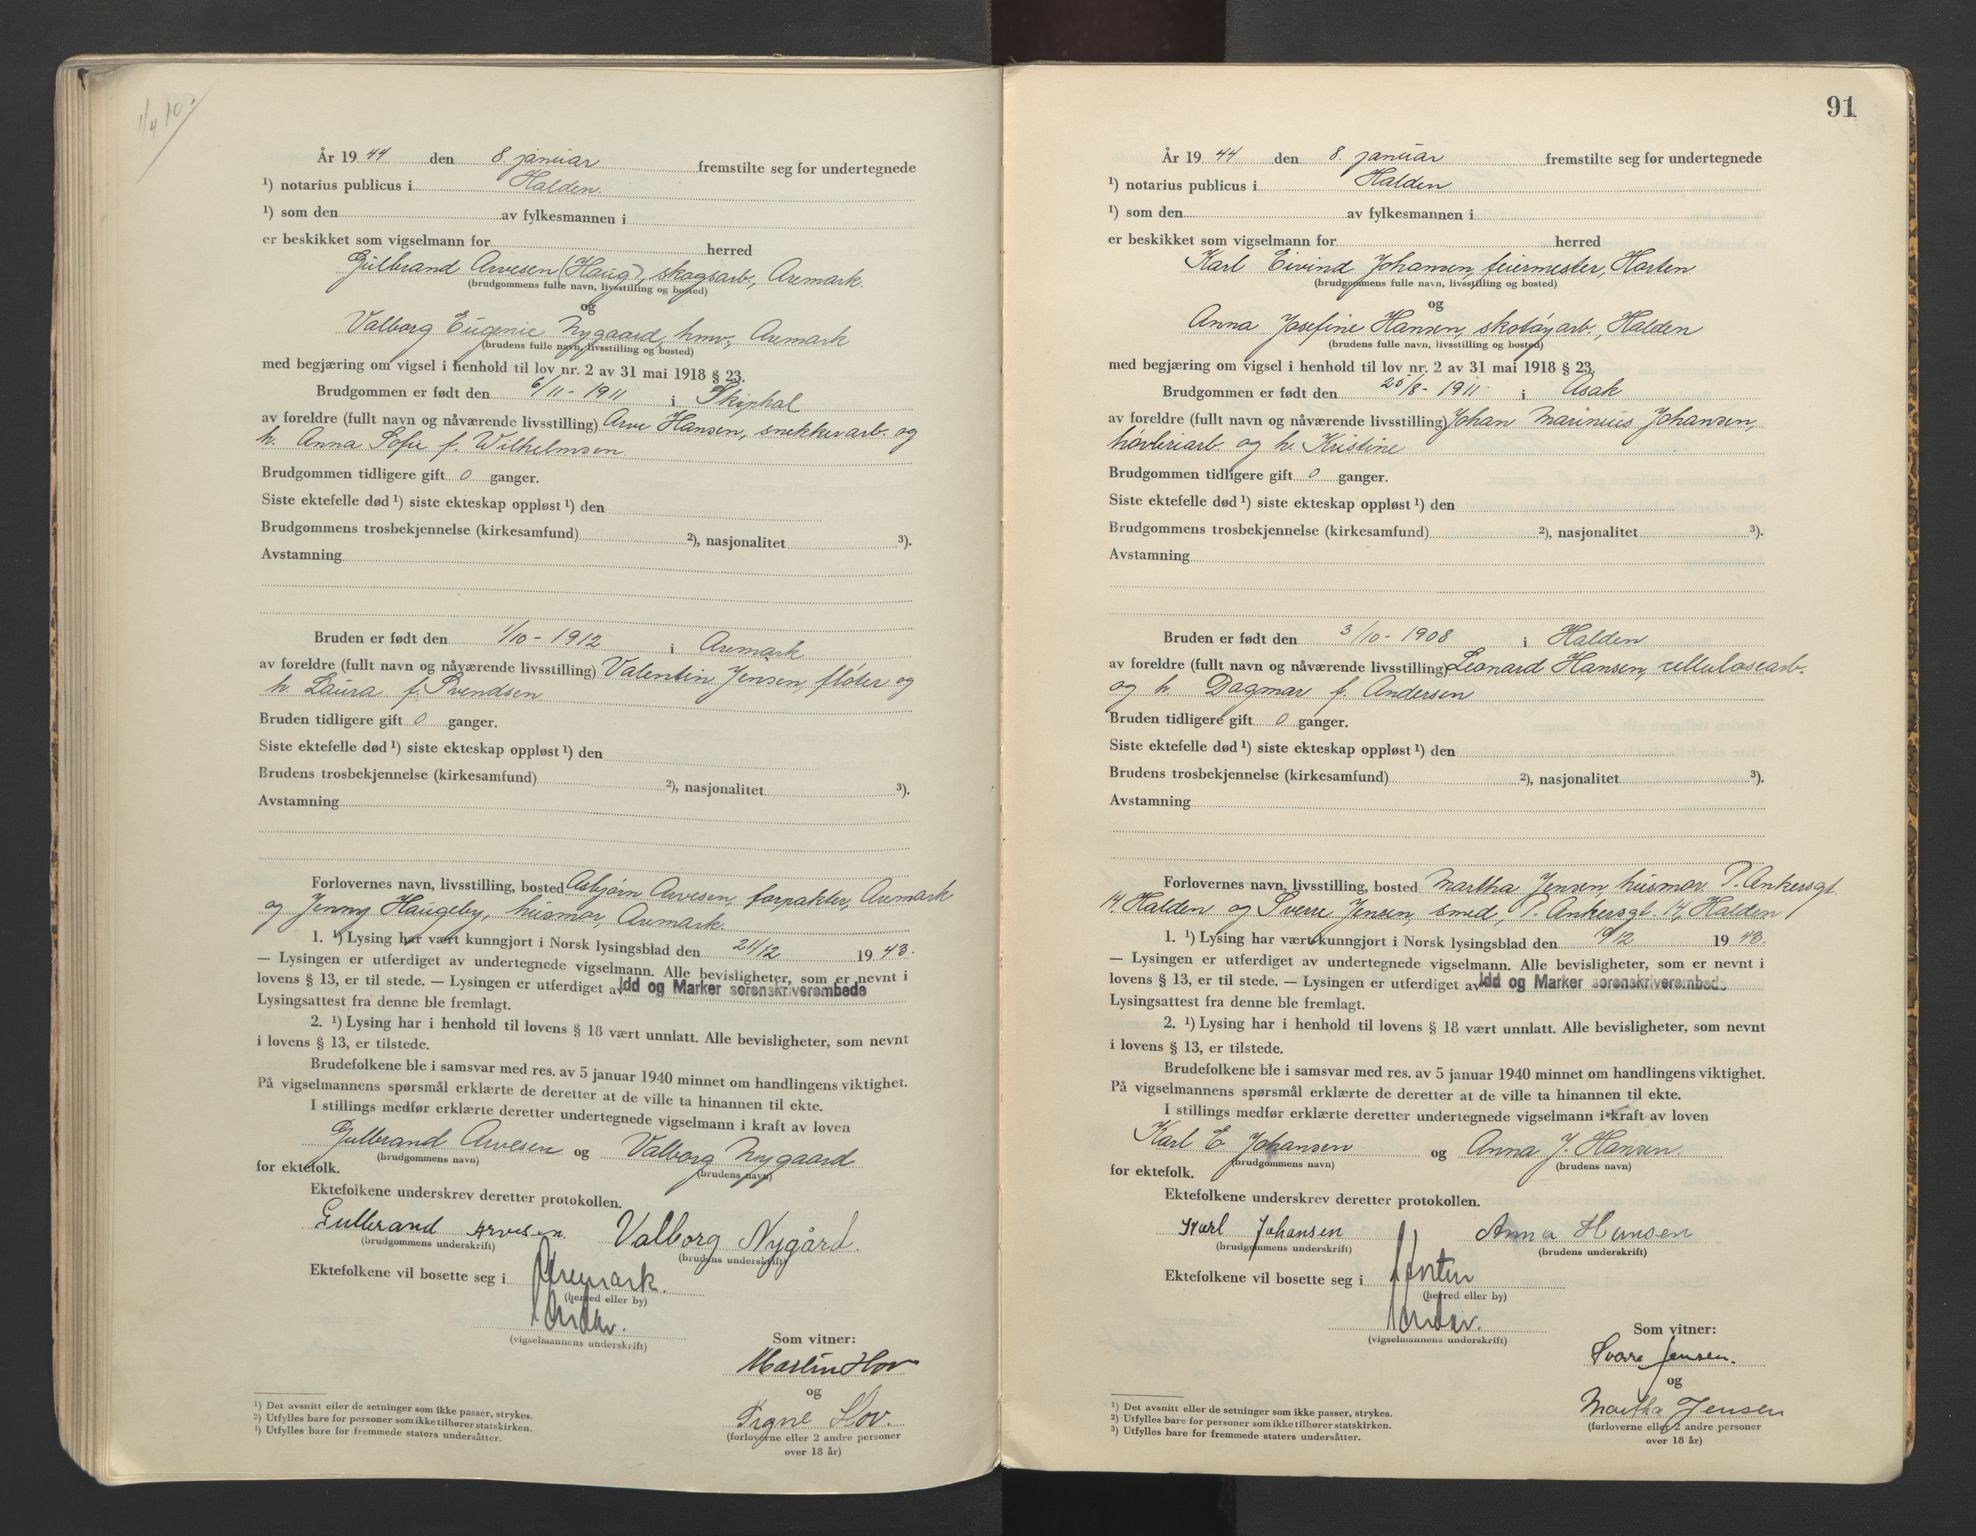 År 1944 den 8. januar fremstilte seg for undertegnede
¹) notarius publicus i Halden.
¹) som den av fylkesmannen i
er beskikket som vigselmann for herred
Gulbrand Arvesen (Haug), skogsarb., Aremark.
(brudgommens fulle navn, livsstilling og bosted)
og
Valborg Eugenie Nygaard, hmv., Aremark
(brudens fulle navn, livsstilling og bosted)
med begjæring om vigsel i henhold til lov nr. 2 av 31 mai 1918 § 23.
Brudgommen er født den 6/11 - 1911 i
av foreldre (fullt navn og nåværende livsstilling) Arve Hansen, snekkerarb. og
h. Anna Sofie f. Wilhelmsen
Brudgommen tidligere gift 0 ganger.
Siste ektefelle død ¹) siste ekteskap oppløst ¹) den
Brudgommens trosbekjennelse (kirkesamfund) ²), nasjonalitet ³).
Avstamning
Bruden er født den 1/10 - 1912 i Aremark
av foreldre (fullt navn og nåværende livsstilling) Valentin Jensen, fløter og
h. Laura f. Svendsen
Bruden tidligere gift 0 ganger.
Siste ektefelle død ¹) siste ekteskap oppløst ¹) den
Brudens trosbekjennelse (kirkesamfund) ²), nasjonalitet ³).
Avstamning
Forlovernes navn, livsstilling, bosted Asbjørn Arvesen, forpakter, Aremark
og Jenny Haugeby, husmor, Aremark.
1. ¹) Lysing har vært kunngjort i Norsk lysingsblad den 21/12 1943.
— Lysingen er utferdiget av undertegnede vigselmann. Alle bevisligheter, som er nevnt i
lovens § 13, er til stede. — Lysingen er utferdiget av Idd og Marker sorenskriverembede
Lysingsattest fra denne ble fremlagt.
2. ¹) Lysing har i henhold til lovens § 18 vært unnlatt. Alle bevisligheter, som nevnt
i lovens § 13, er tilstede.
Brudefolkene ble i samsvar med res. av 5 januar 1940 minnet om handlingens viktighet.
På vigselmannens spørsmål erklærte de deretter at de ville ta hinannen til ekte.
I stillings medfør erklærte deretter undertegnede vigselmann i kraft av loven
Gulbrand Arvesen og Valborg Nygaard
(brudgommens navn) (brudens navn)
for ektefolk.
Ektefolkene underskrev deretter protokollen.
Gulbrand Arvesen. Valborg Nygård.
(brudgommens underskrift) (brudens underskrift)
Ektefolkene vil bosette seg i Aremark.
(herred eller by)
(vigselmannens underskrift)
Som vitner:
Martin Hov
og
Signe Hov.
(forloverne eller 2 andre personer
over 18 år)
¹) Det avsnitt eller de setninger som ikke passer, strykes.
²) Utfylles bare for personer som ikke tilhører statskirken.
³) Utfylles bare for fremmede staters undersåtter.
91
År 1944 den 8. januar fremstilte seg for undertegnede
¹) notarius publicus i Halden
¹) som den av fylkesmannen i
er beskikket som vigselmann for herred
Karl Eivind Johansen, feiermester, Horten
(brudgommens fulle navn, livsstilling og bosted)
og
Anna Josefine Hansen, skotøyarb., Halden
(brudens fulle navn, livsstilling og bosted)
med begjæring om vigsel i henhold til lov nr. 2 av 31 mai 1918 § 23.
Brudgommen er født den 25/8 - 1911 i Asak
av foreldre (fullt navn og nåværende livsstilling) Johan Marinius Johansen,
høvleriarb. og h. Kristine
Brudgommen tidligere gift 0 ganger.
Siste ektefelle død ¹) siste ekteskap oppløst ¹) den
Brudgommens trosbekjennelse (kirkesamfund) ²), nasjonalitet ³).
Avstamning
Bruden er født den 3/10 - 1908 i Halden
av foreldre (fullt navn og nåværende livsstilling) Leonard Hansen, cellulosearb.
og h. Dagmar f. Andersen
Bruden tidligere gift 0 ganger.
Siste ektefelle død ¹) siste ekteskap oppløst ¹) den
Brudens trosbekjennelse (kirkesamfund) ²), nasjonalitet ³).
Avstamning
Forlovernes navn, livsstilling, bosted Martha Jensen, husmor P. Ankersgt.
14, Halden og Sverre Jensen, smed, P. Ankersgt. 14, Halden
1. ¹) Lysing har vært kunngjort i Norsk lysingsblad den 10/12 1943.
— Lysingen er utferdiget av undertegnede vigselmann. Alle bevisligheter, som er nevnt i
lovens § 13, er til stede. — Lysingen er utferdiget av Idd og Marker sorenskriverembede
Lysingsattest fra denne ble fremlagt.
2. ¹) Lysing har i henhold til lovens § 18 vært unnlatt. Alle bevisligheter, som nevnt
i lovens § 13, er tilstede.
Brudefolkene ble i samsvar med res. av 5 januar 1940 minnet om handlingens viktighet.
På vigselmannens spørsmål erklærte de deretter at de ville ta hinannen til ekte.
I stillings medfør erklærte deretter undertegnede vigselmann i kraft av loven
Karl E. Johansen og Anna J. Hansen.
(brudgommens navn) (brudens navn)
for ektefolk.
Ektefolkene underskrev deretter protokollen.
Karl Johansen Anna Hansen
(brudgommens underskrift) (brudens underskrift)
Ektefolkene vil bosette seg i Horten
(herred eller by)
(vigselmannens underskrift)
Som vitner:
Sverre Jensen.
og
Martha Jensen
(forloverne eller 2 andre personer
over 18 år)
¹) Det avsnitt eller de setninger som ikke passer, strykes.
²) Utfylles bare for personer som ikke tilhører statskirken.
³) Utfylles bare for fremmede staters undersåtter.